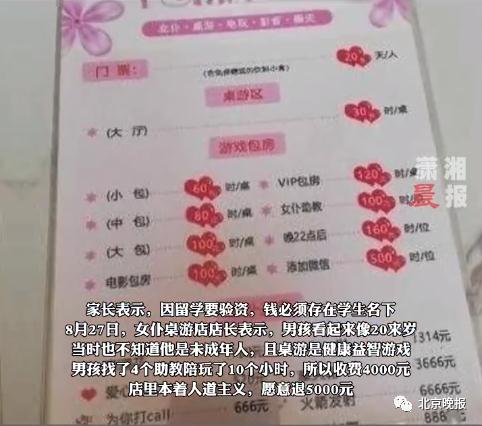 女仆·桌游·电玩·影音·聊天
门 票： 20 天/人
桌游区
(大 厅) 30 时/桌
游戏包房
(小 包) 60 时/桌 VIP包房 120 时/桌
(中 包) 80 时/桌 女仆助教 100 时/位
(大 包) 100 时/桌 晚22点后 160 时/位
电影包房 100 时/桌 添加微信 500 时/位
潇湘晨报
家长表示，因留学要验资，钱必须存在学生名下
8月27日，女仆桌游店店长表示，男孩看起来像20来岁
当时也不知道他是未成年人，且桌游是健康益智游戏
男孩找了4个助教陪玩了10个小时，所以收费4000元
店里本着人道主义，愿意退5000元
314元
3666元
爱心
为你打call 666元 火箭发射
888
北京晚报